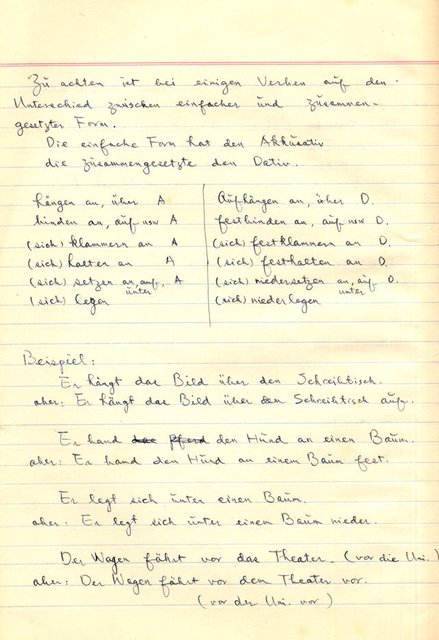 Zu achten ist bei einigen Verben auf den
Unterschied zwischen einfacher und zusammen-
gesetzter Form.
Die einfache Form hat den Akkusativ
die zusammengesetzte den Dativ.
hängen an, über A
Aufhängen an, über D.
binden an, auf usw A
festbinden an, auf usw D.
(sich) klammern an A
(sich) festklammern an D.
(sich) halten an A
(sich) festhalten an D.
(sich) setzen an, auf, unter A
(sich) niedersetzen an, auf unter D.
(sich) legen
(sich) niederlegen
Beispiel:
Er hängt das Bild über den Schreibtisch.
aber: Er hängt das Bild über dem Schreibtisch auf.
Er band das Pferd den Hund an einen Baum.
aber: Er band den Hund an einem Baum fest.
Er legt sich unter einen Baum.
aber: Er legt sich unter einem Baum nieder.
Der Wagen fährt vor das Theater. (vor die Uni.)
aber: Der Wagen fährt vor dem Theater vor.
(vor der Uni. vor)